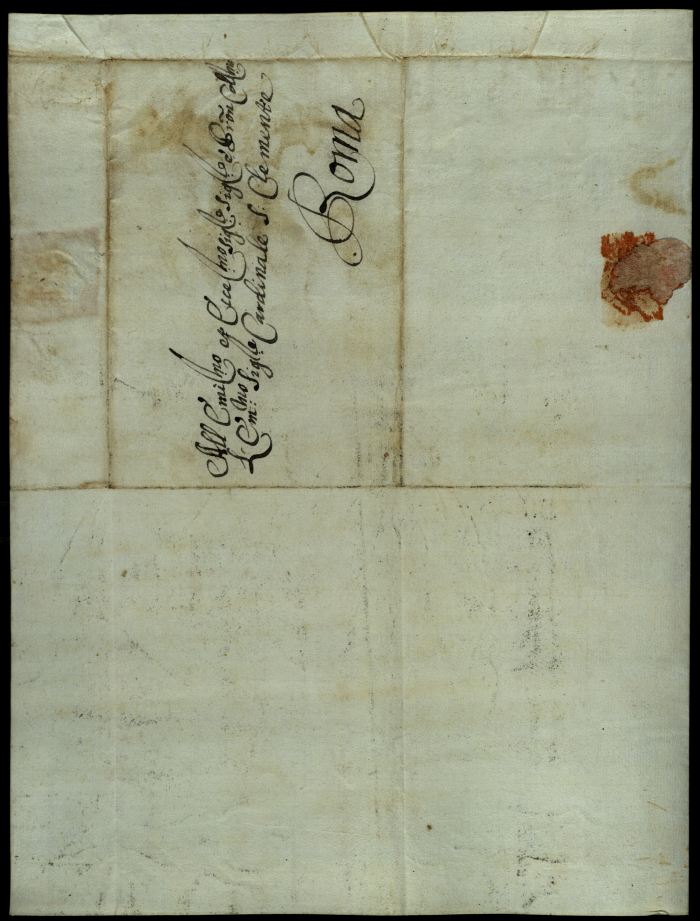 All' Emin.mo et Ecce.mo Sig.re Sig.re e Pron Coll.mo
L' Em:mo Sig.re Cardinale S. Clemente
Roma